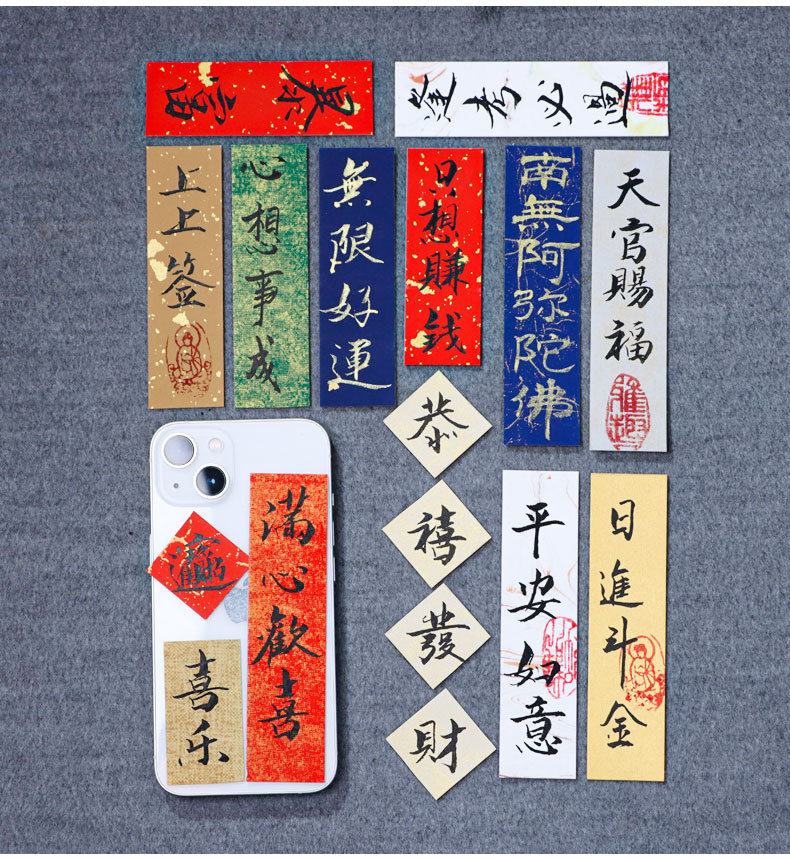 暴富
逢考必過
上上签
心想事成
無限好運
只想賺钱
南無阿弥陀佛
天官賜福
恭
禧
發
財
招財進寶
满心歡喜
喜乐
平安如意
日進斗金